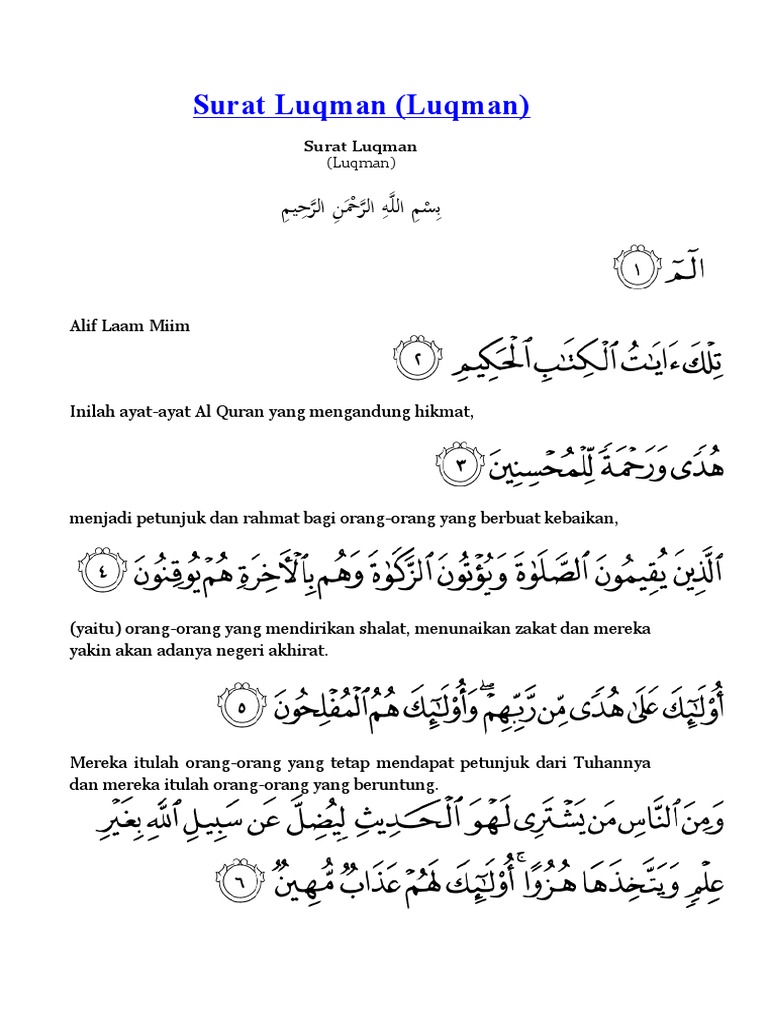 Surat Luqman (Luqman)
Surat Luqman
(Luqman)
بِسْمِ اللَّهِ الرَّحْمَنِ الرَّحِيمِ
الٓمٓ ١
Alif Laam Miim
تِلْكَ ءَايَٰتُ ٱلْكِتَٰبِ ٱلْحَكِيمِ ٢
Inilah ayat-ayat Al Quran yang mengandung hikmat,
هُدًى وَرَحْمَةً لِّلْمُحْسِنِينَ ٣
menjadi petunjuk dan rahmat bagi orang-orang yang berbuat kebaikan,
ٱلَّذِينَ يُقِيمُونَ ٱلصَّلَوٰةَ وَيُؤْتُونَ ٱلزَّكَوٰةَ وَهُم بِٱلْءَاخِرَةِ هُمْ يُوقِنُونَ ٤
(yaitu) orang-orang yang mendirikan shalat, menunaikan zakat dan mereka
yakin akan adanya negeri akhirat.
أُو۟لَٰٓئِكَ عَلَىٰ هُدًى مِّن رَّبِّهِمْ ۖ وَأُو۟لَٰٓئِكَ هُمُ ٱلْمُفْلِحُونَ ٥
Mereka itulah orang-orang yang tetap mendapat petunjuk dari Tuhannya
dan mereka itulah orang-orang yang beruntung.
وَمِنَ ٱلنَّاسِ مَن يَشْتَرِى لَهْوَ ٱلْحَدِيثِ لِيُضِلَّ عَن سَبِيلِ ٱللَّهِ بِغَيْرِ
عِلْمٍ وَيَتَّخِذَهَا هُزُوًا ۚ أُو۟لَٰٓئِكَ لَهُمْ عَذَابٌ مُّهِينٌ ٦